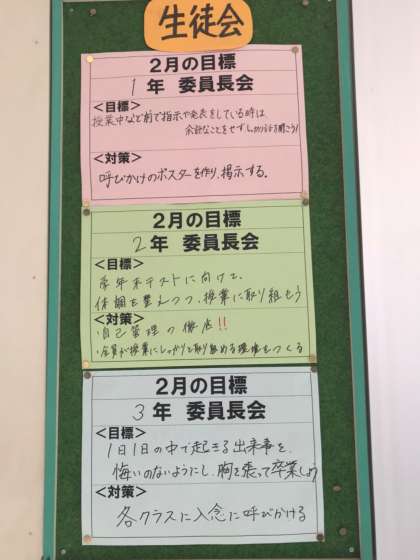 生徒会
2月の目標
1年 委員長会
<目標>
授業中など前で指示や発表をしている時は
余計なことをせず、しっかり話を聞こう!
<対策>
呼びかけのポスターを作り、掲示する。
2月の目標
2年 委員長会
<目標>
学年末テストに向けて、
体調を整えつつ、授業に取り組もう
<対策>
・自己管理の徹底!!
・全員が授業にしっかりと取り組める環境をつくる
2月の目標
3年 委員長会
<目標>
1日1日の中で起きる出来事を、
悔いのないようにし、胸を張って卒業しよう
<対策>
各クラスに入念に呼びかける